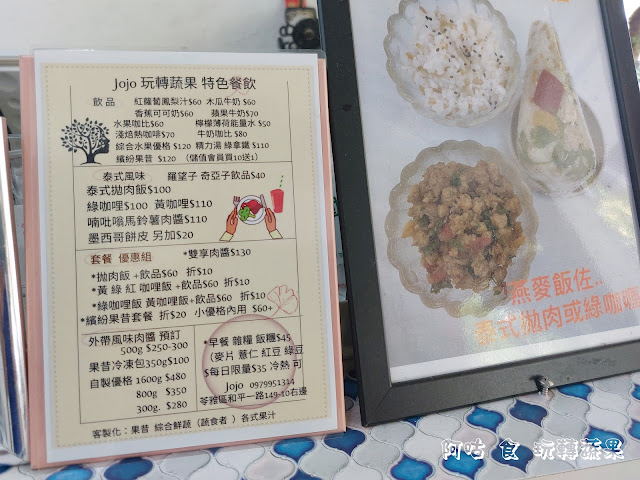 Jojo 玩轉蔬果 特色餐飲
飲品 紅蘿蔔鳳梨汁$60 木瓜牛奶 $60
香蕉可可奶$60 蘋果牛奶$70
水果咖比$60 檸檬薄荷能量水 $50
淺焙熱咖啡$70 牛奶咖比 $80
綜合水果優格 $120 精力湯 綠拿鐵 $110
繽紛果昔 $120 (儲值會員買10送1)
泰式風味 羅望子 奇亞子飲品$40
泰式拋肉飯$100
綠咖哩$100 黃咖哩$110
喃吡嗡馬鈴薯肉醬$110
墨西哥餅皮 另加$20
套餐 優惠組 *雙享肉醬$130
*拋肉飯 +飲品$60 折$10
*黃 綠 紅 咖哩飯 +飲品$60 折$10
*綠咖哩飯 黃咖哩飯+飲品$60 折$10
*繽紛果昔套餐 折$20 小優格內用 $60+
外帶風味肉醬 預訂
500g $250-300
果昔冷凍包350g$100
自製優格 1600g $480
800g $350
300g. $280
*早餐 雜糧 飯糰$45
(麥片 薏仁 紅豆 綠豆
$每日限量$35 冷熱 可
Jojo 0979951314
苓雅區和平一路149-10右邊
客製化：果昔 綜合鮮蔬 (蔬食者 ) 各式果汁
燕麥飯佐..
泰式拋肉或綠咖哩
阿咕 食 玩轉蔬果